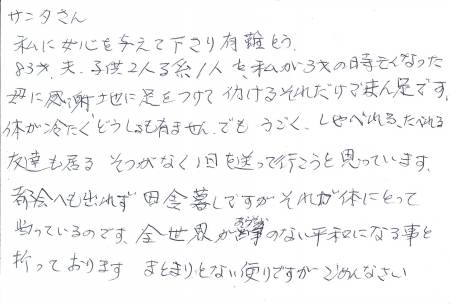 サンタさん
私に安心を与えて下さり有難とう。
83才、夫、子供2人る孫1人を、私が3才の時亡くなった
母に感謝地に足をつけて 仂けるそれだけでまん足です。
体が冷たく どうしるも有ません。でも うごく、しゃべれる、たべれる
友達も居る そつがなく1日を送って行こうと思っています。
都会へも出れず 田舎暮しですが それが体にとって
当っているのです。全世界が のない平和になる事を
祈っております まとまりとない便りですが ごめんなさい